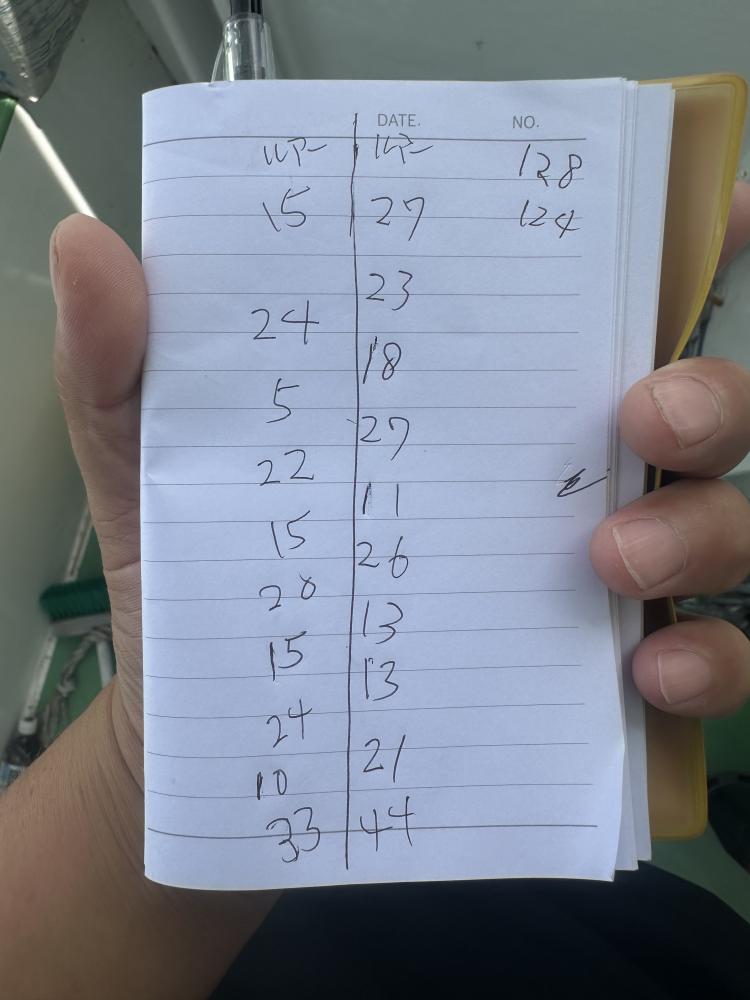 DATE. NO.
128
15 27 124
23
24
18
5
27
22
11
15
26
20
13
15
13
24
21
10
33 44